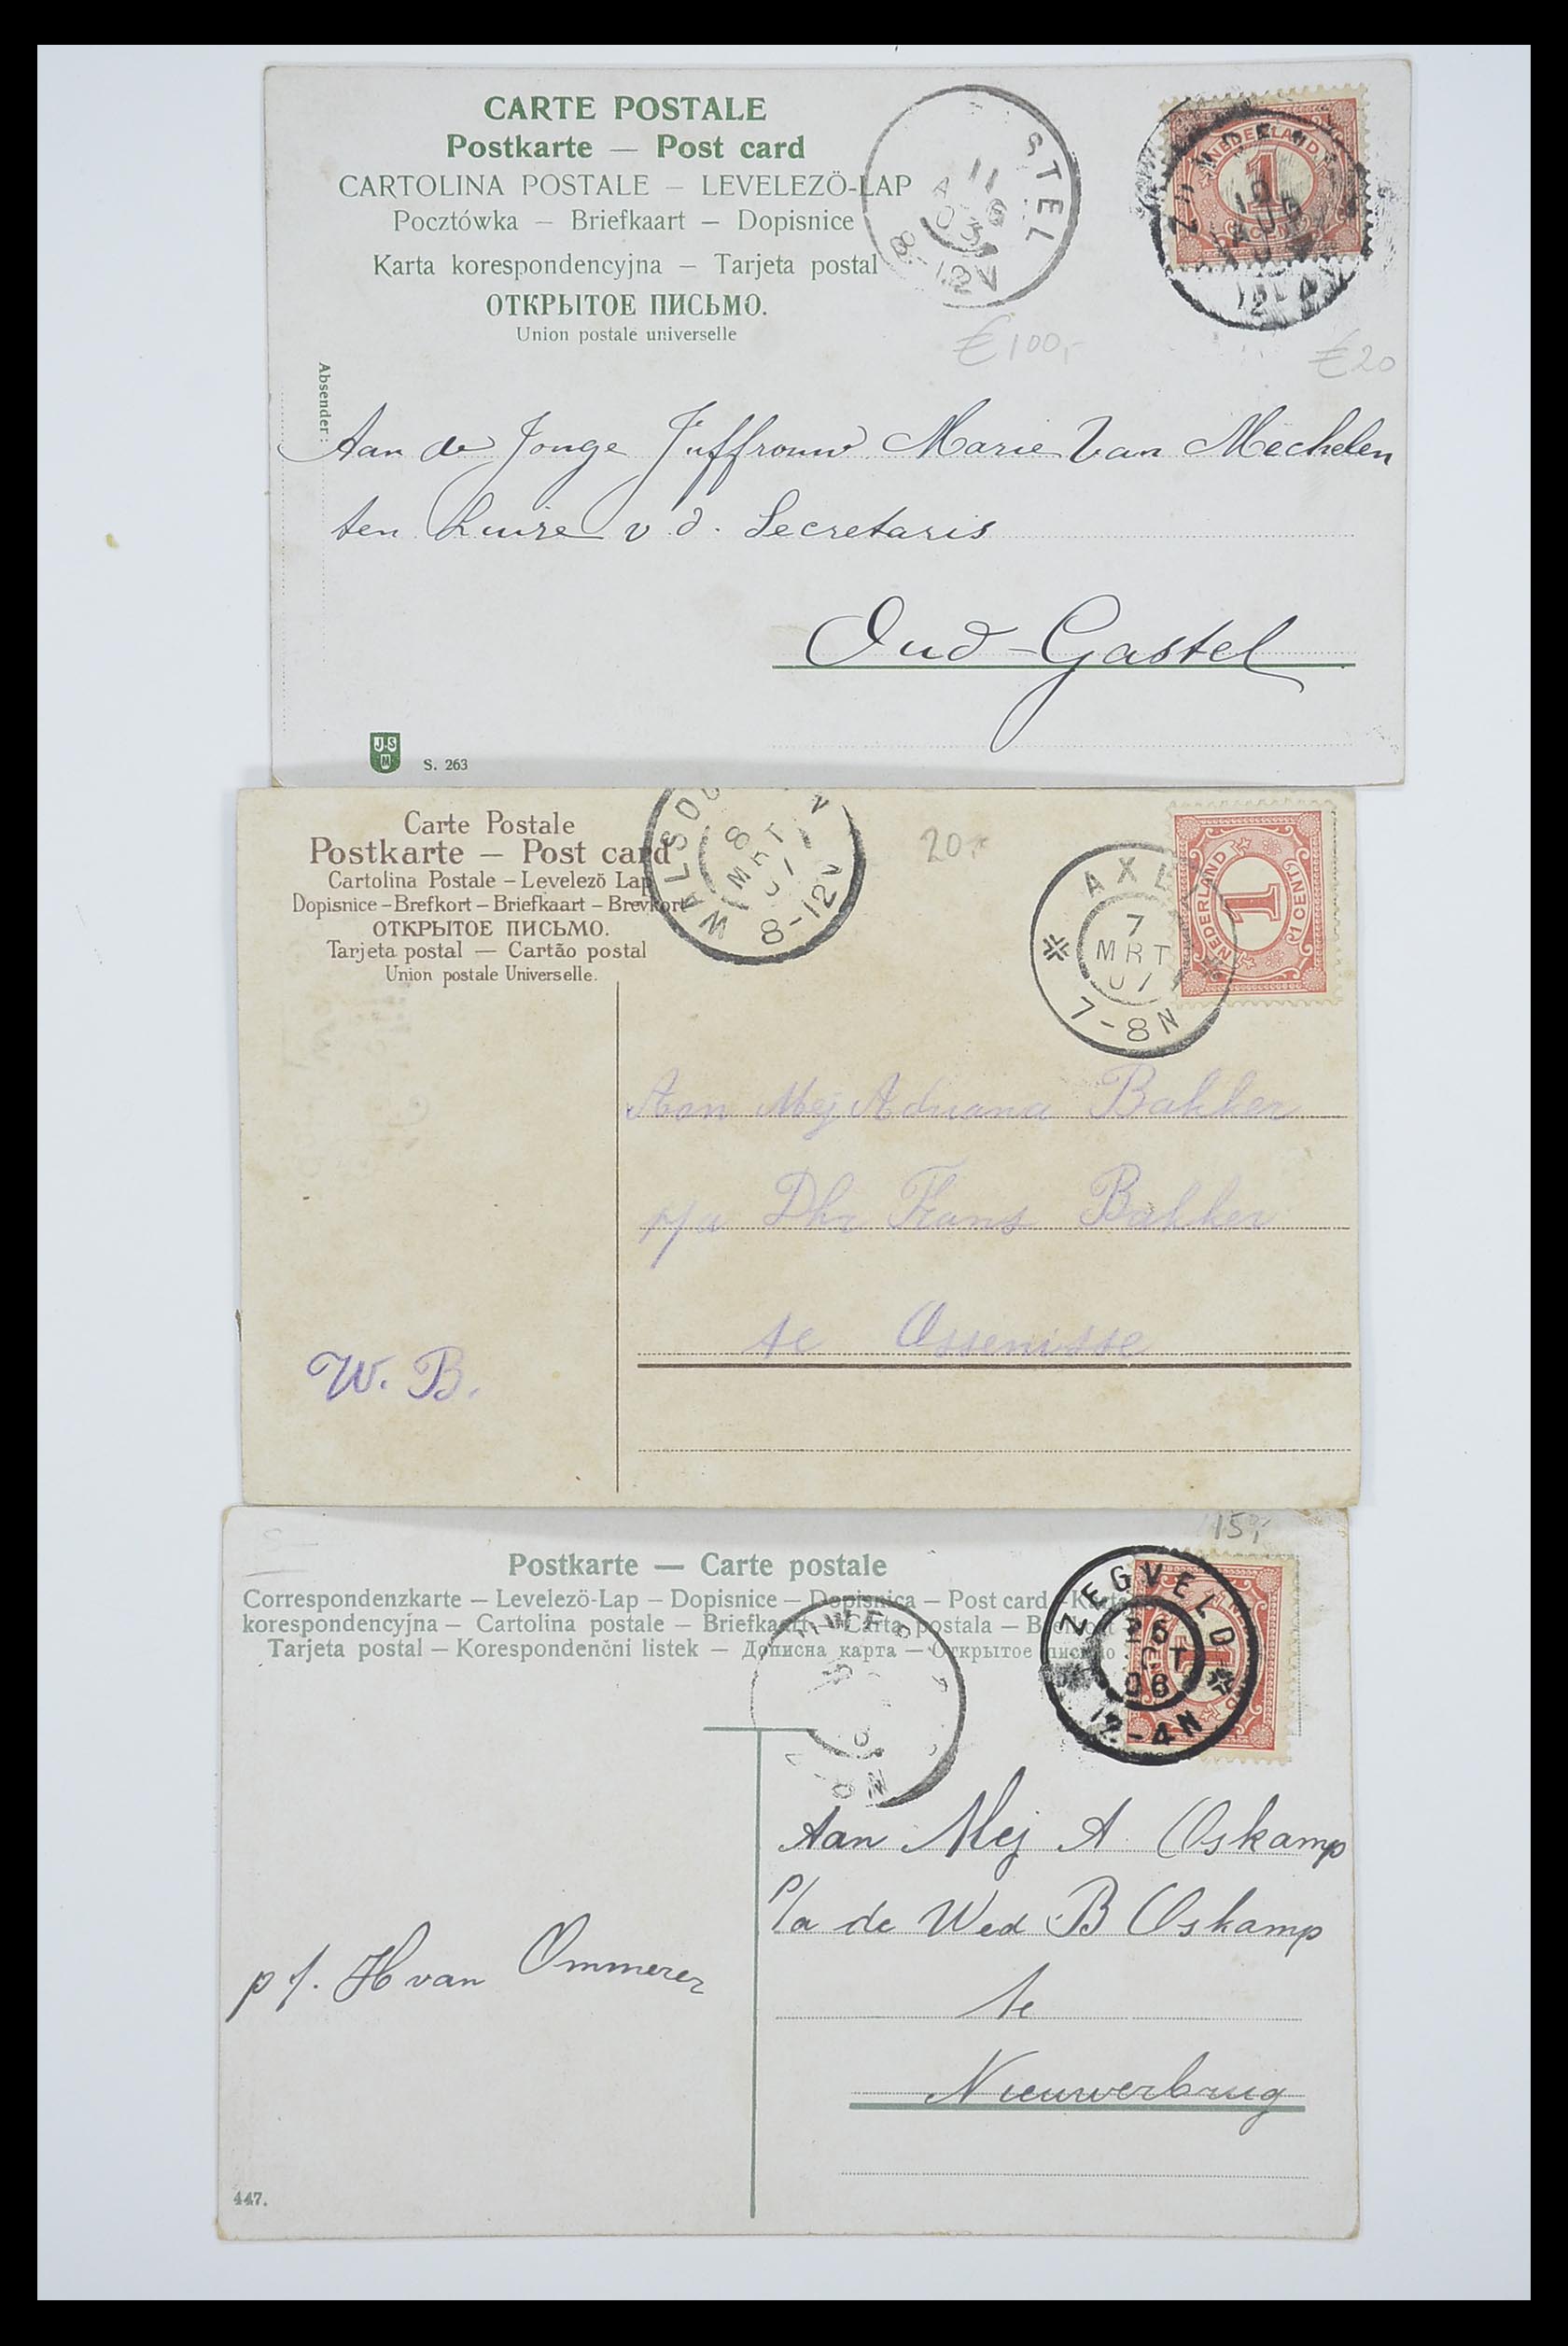 CARTE POSTALE
Postkarte — Post card
CARTOLINA POSTALE — LEVELEZÖ-LAP
Pocztówka — Briefkaart — Dopisnice
Karta korespondencyjna — Tarjeta postal
ОТКРЫТОЕ ПИСЬМО.
Union postale universelle
STEL
11
8-12V
NEDERLAND
1
1 CENT
AUG
€100,-
€20
Absender:
Aan de Jonge Juffrouw Marie Van Mechelen
ten huize v. d. Secretaris
Oud-Gastel
J.S
M
S. 263
Carte Postale
Postkarte — Post card
Cartolina Postale – Levelezö Lap
Dopisnice – Brefkort – Briefkaart – Brevkort
ОТКРЫТОЕ ПИСЬМО.
Tarjeta postal — Cartão postal
Union postale Universelle.
WALSOO
8
MRT
07
8-12V
20,-
AXEL
7
MRT
07
7-8N
NEDERLAND
1
1 CENT
Aan Mej Adriana Bakker
p/a Dhr Frans Bakker
te Ossenisse
W. B.
15,-
Postkarte — Carte postale
Correspondenzkarte – Levelezö-Lap – Dopisnice – Dopisnica – Post card – Karta
korespondencyjna – Cartolina postale – Briefkaart – Carta postala – Brefkort
Tarjeta postal – Korespondenčni listek – Дописна карта – Открытое письмо
ZEGVELD
08
12-4N
Aan Mej A Oskamp
p/a de Wed B Oskamp
te
Nieuwerbrug
p f. H van Ommeren
447.